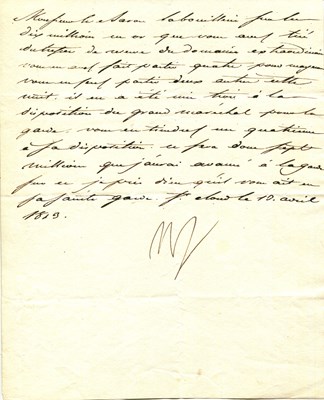 Monsieur le Baron labouillerie sur les
dix millions en or que vous avez tiré
du trésor de reserve du domaine extraordinaire
vous en avez fait partir quatre pour mayence
vous en ferez partir deux autres cette
nuit. il en a été mis trois à la
disposition du grand maréchal pour la
garde: vous en tiendrez un quatrième
à sa disposition. ce sera donc sept
millions que j'aurai avancé à la garde
sur ce je prie dieu qu'il vous ait en
sa sainte garde. St cloud le 10. avril
1813.